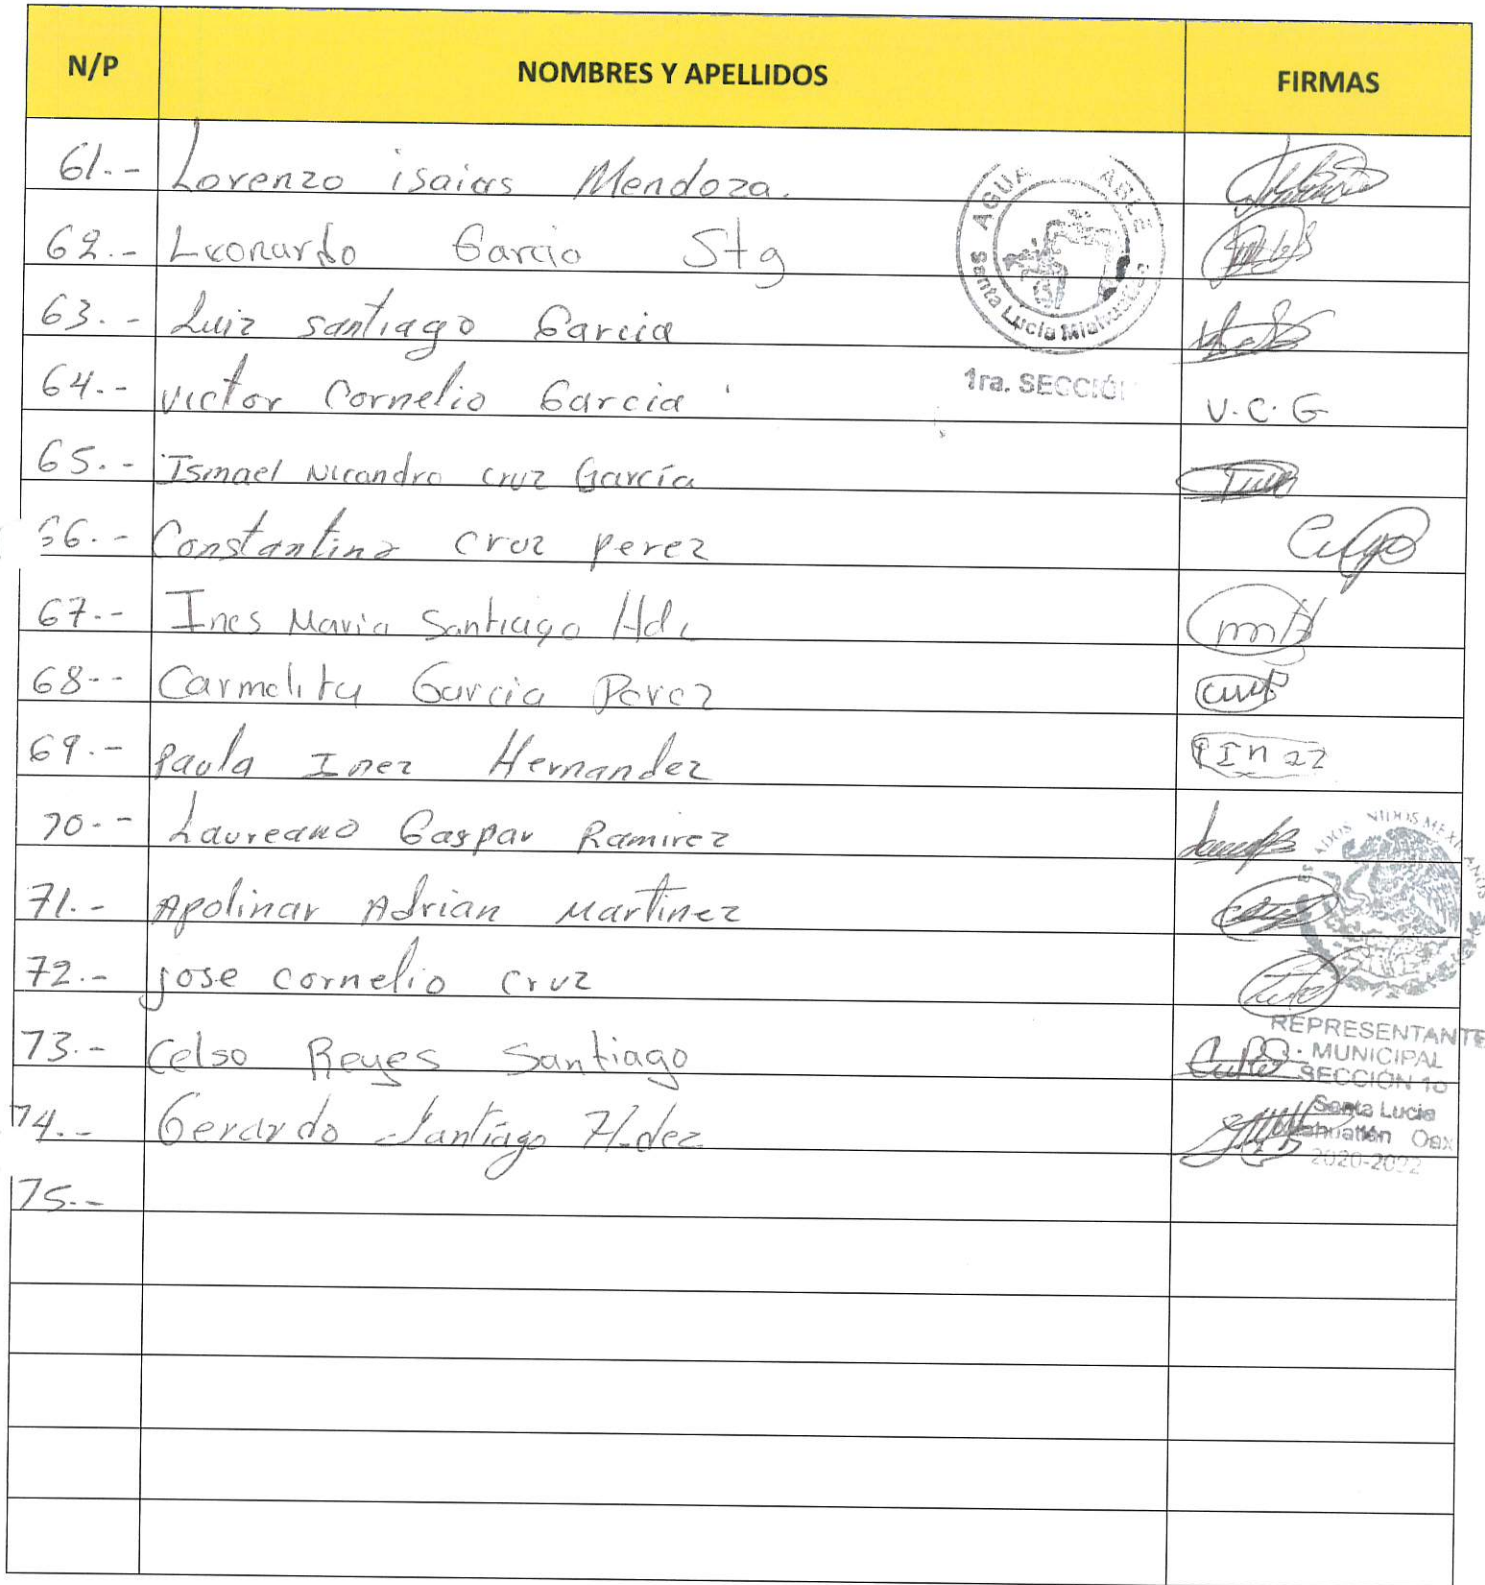 N/P NOMBRES Y APELLIDOS FIRMAS
61.- Lorenzo isaias Mendoza.
62.- Leonardo Garcia Stg
63.- Luiz santiago Garcia
64.- victor Cornelio Garcia V.C.G
65.- Ismael Nicandro cruz García
66.- Constantino cruz perez
67.- Ines Maria Santiago Hdz
68.- Carmelita Garcia Perez
69.- Paula Inez Hernandez PINZZ
70.- Laureano Gaspar Ramirez
71.- Apolinar Adrian Martinez
72.- jose cornelio cruz
73.- Celso Reyes Santiago
74.- Gerardo Santiago Hdez
75.-
AGUA ABLE
Santa Lucia
1ra. SECCIÓN
REPRESENTANTE
MUNICIPAL
SECCIÓN 1a
Santa Lucia
Oax
2020-2022